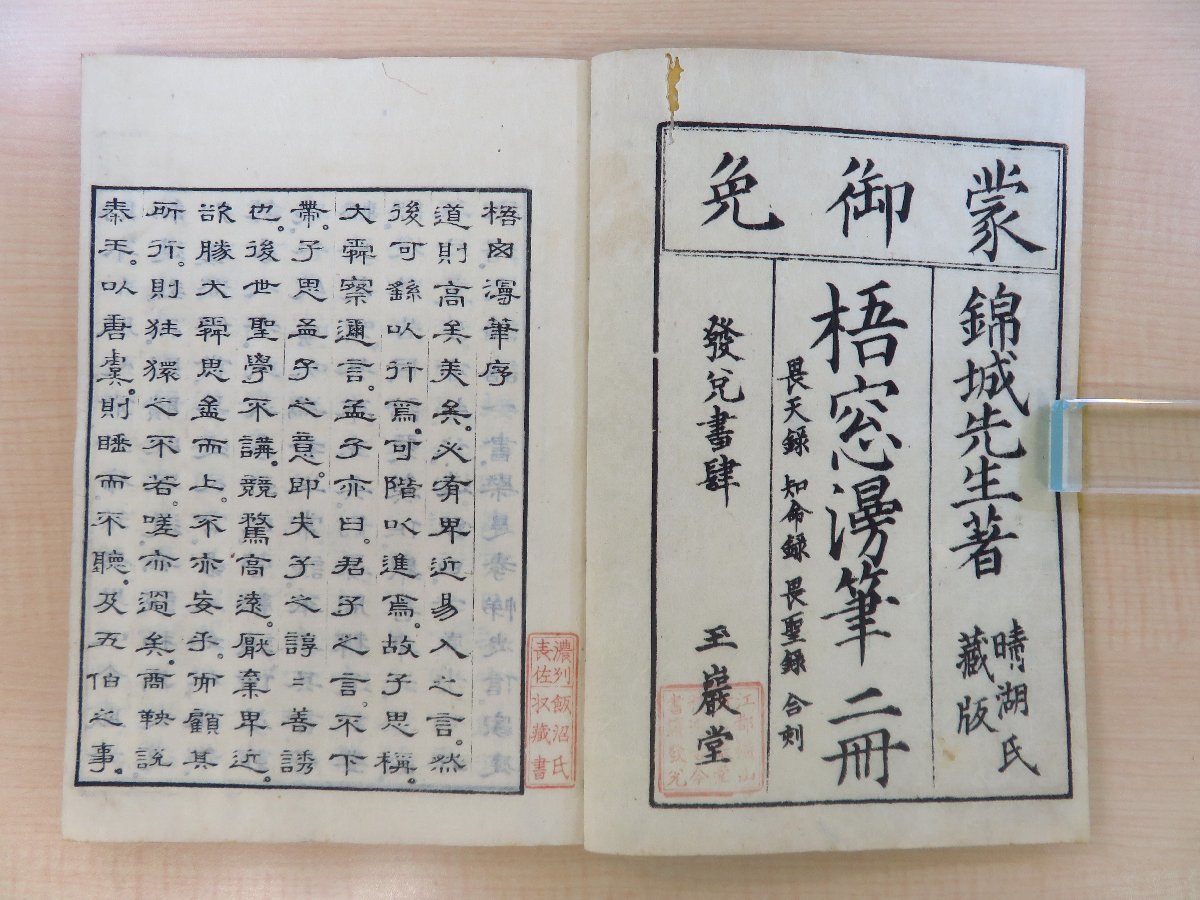 蒙御免
錦城先生著
晴湖氏
藏版
梧窓漫筆 二冊
畏天録 知命録 畏聖録 合刻
發兌書肆 玉巖堂
梧囱漫筆序
道則高矣美矣。必有卑近易入之言。然
後可繇以行焉。可階以進焉。故子思稱。
大舜察邇言。孟子亦曰。君子之言。不下
帶。子思孟子之意。即夫子之諄〻善誘
也。後世聖學不講。競騖高遠。厭棄卑近。
欲勝大舜思孟而上。不亦妄乎。而顧其
所行。則狂獧之不若。嗟亦過矣。商鞅説
秦王。以唐虞。則睡而不聽。及五伯之事。
濃列飯沼氏
表佐収藏書